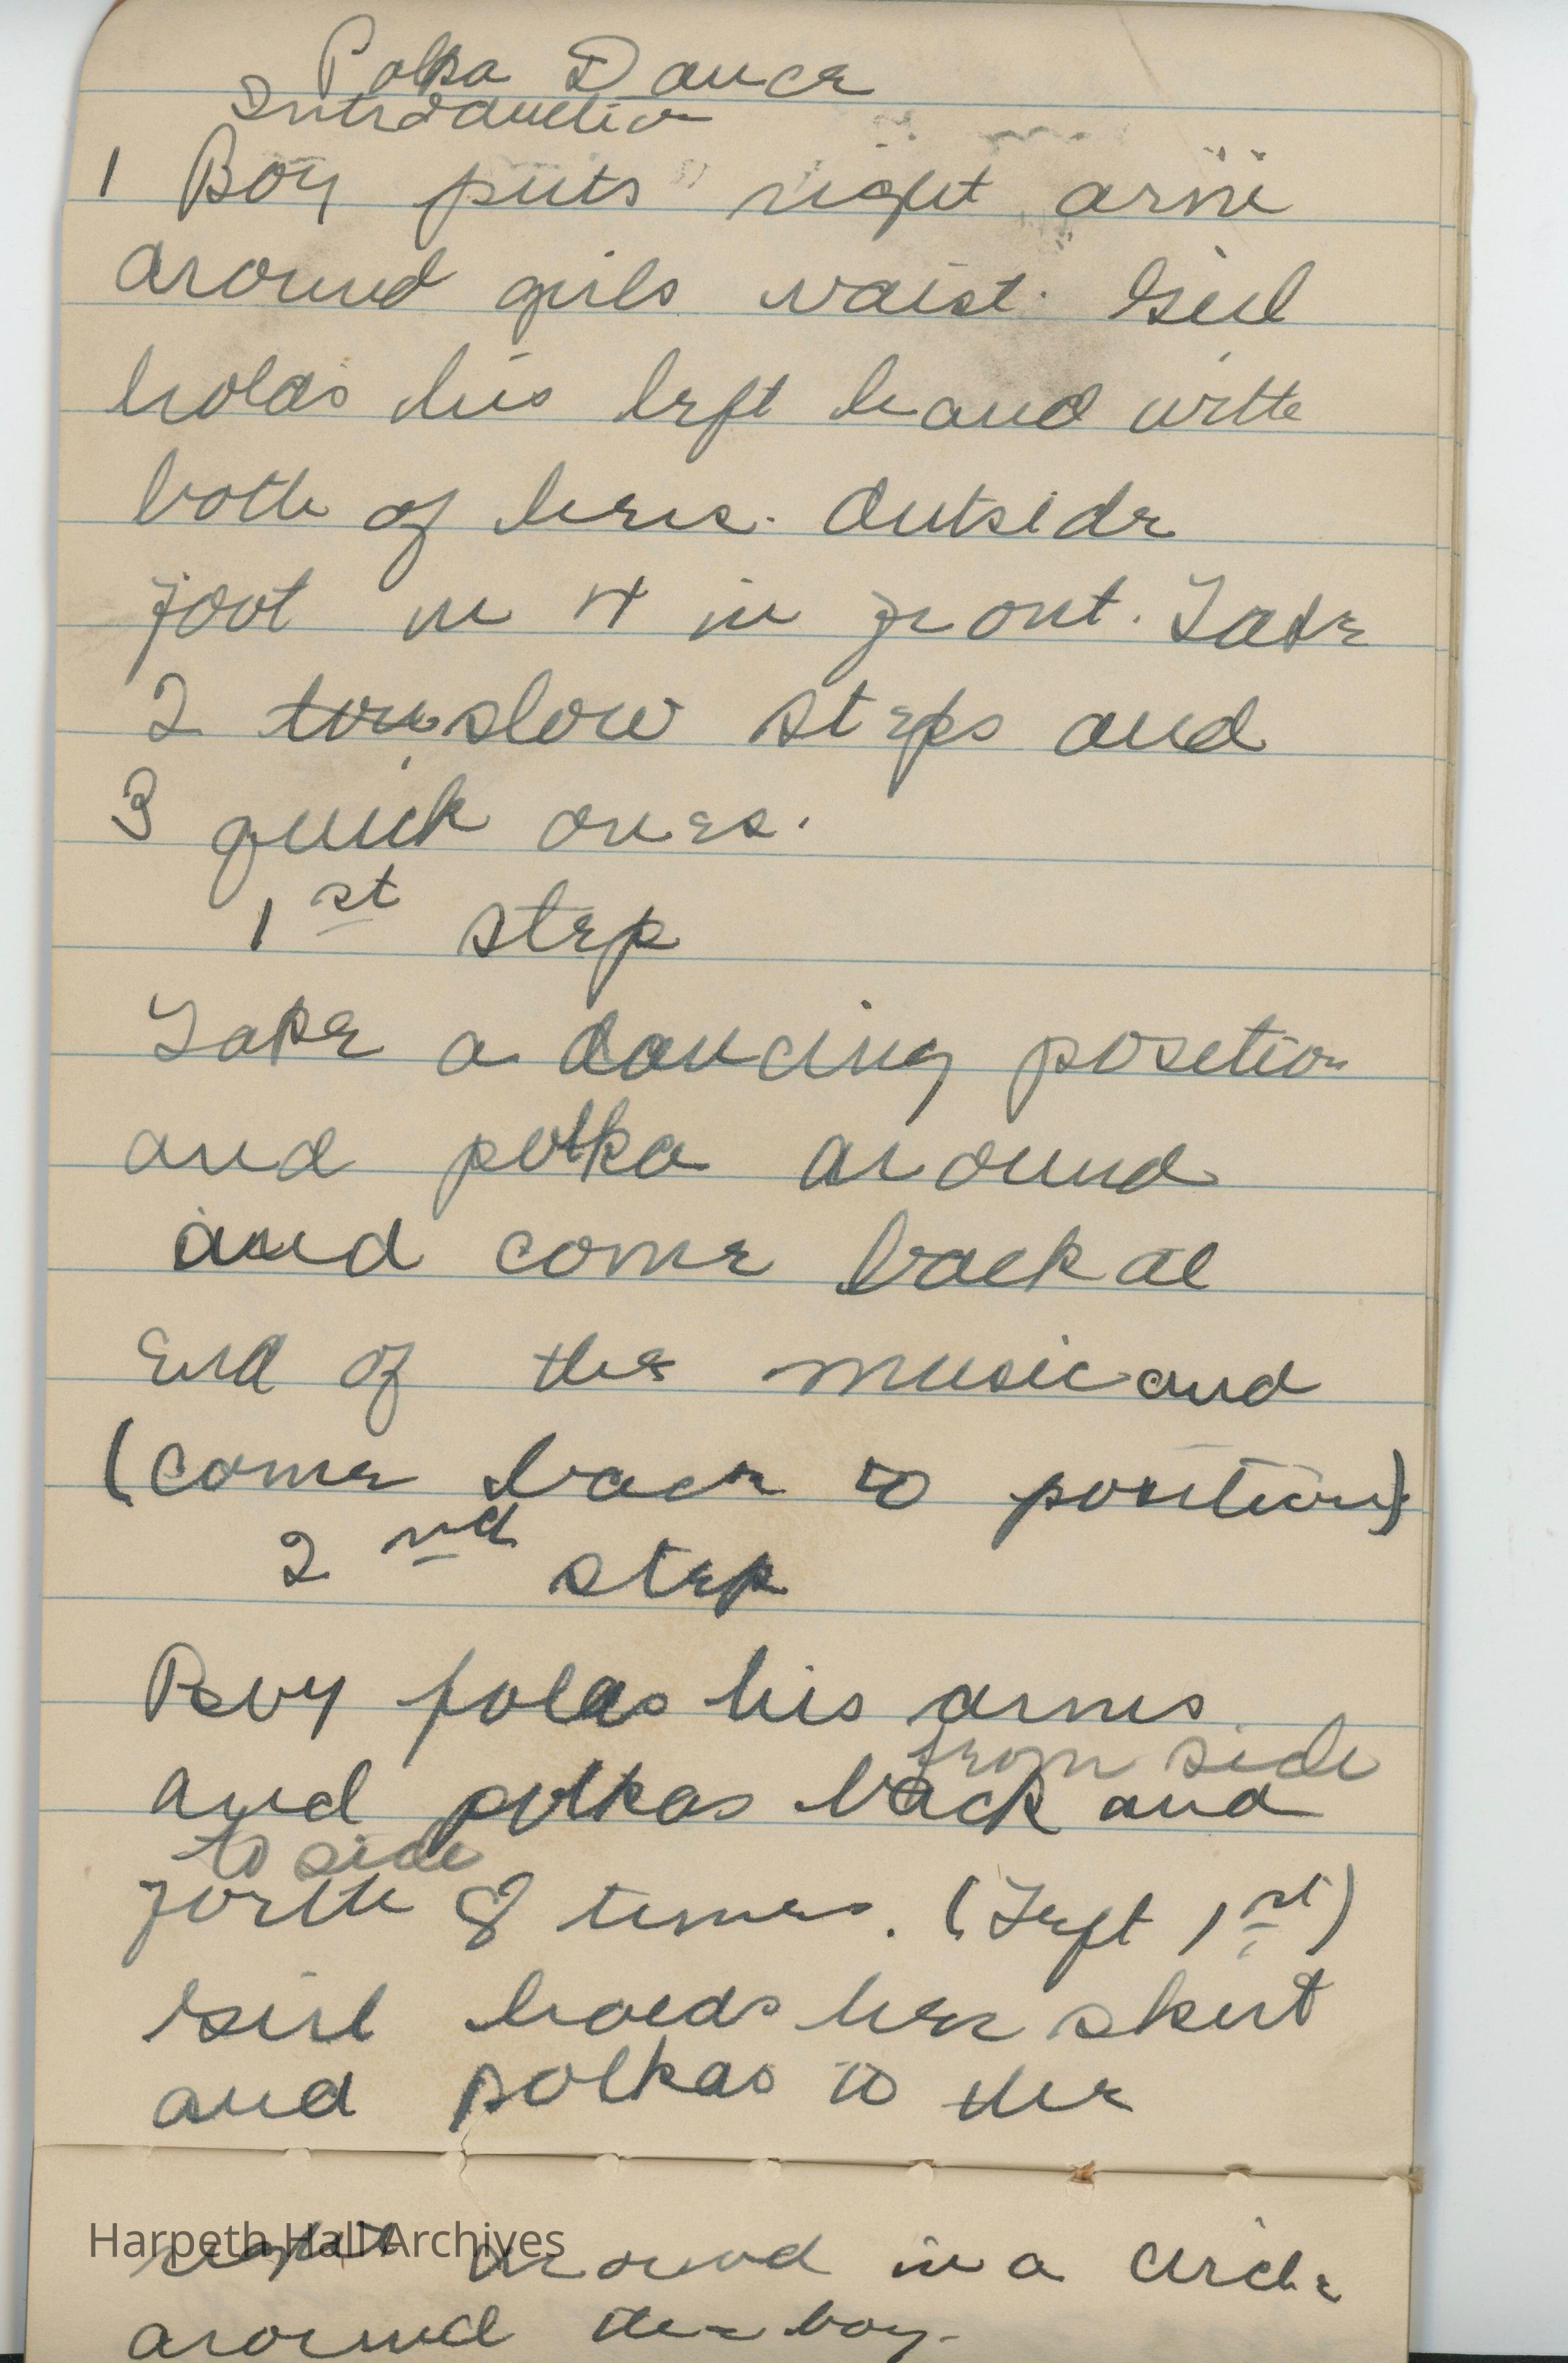 Polka Dance
Introduction
1 Boy puts right arm
around girls waist. Girl
holds his left hand with
both of hers. Outside
foot in 4 in front. Take
2 slow steps and
3 quick ones.
1st step
Take a dancing position
and polka around
and come back at
End of the music and
(come back to position)
2nd step
Boy folds his arms
from side
and polkas back and
to side
forth 8 times. (Left 1st)
Girl holds her skirt
and polkas to the
right around in a circle
around the boy.
Harpeth Hall Archives